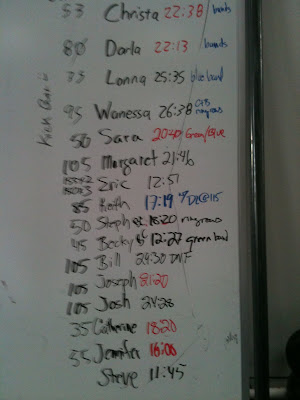 53 Christa 22:38 bands
80 Darla 22:13 bands
33 Lonna 25:35 blue band
95 Wanessa 26:38 ring rows
50 Sara 20:40 Green/blue
105 Margaret 21:46
Eric 12:57
85 Keith 17:19 w/ DL@115
50 Steph 18:20 ring rows
45 Becky 12:27 green band
105 Bill 29:30 DNF
105 Joseph 21:20
105 Josh 24:28
35 Catherine 18:20
55 Jennifer 16:08
Steve 11:45